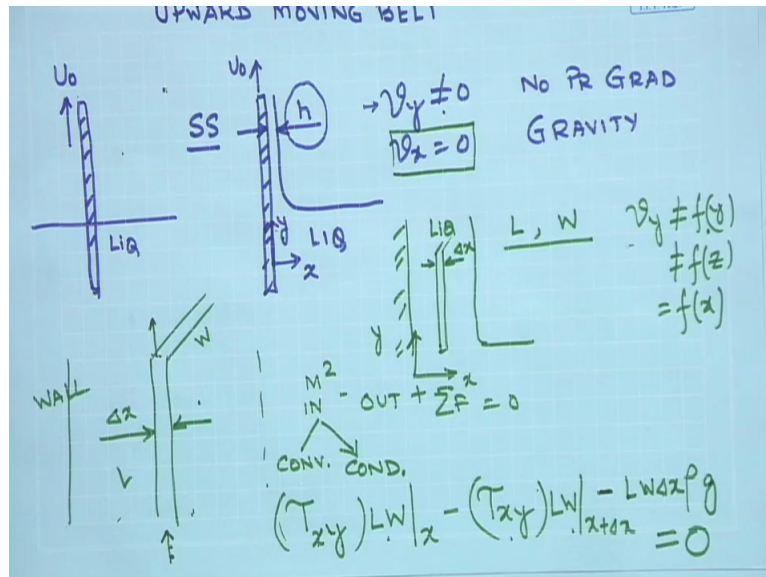 UPWARD MOVING BELT
U₀
U₀
SS
h
→ϑy ≠ 0
ϑx = 0
NO PR GRAD
GRAVITY
LIQ
y
LIQ
x
LIQ
Δx
L, W
y
x
ϑy ≠ f(y)
≠ f(z)
= f(x)
WALL
W
Δx
L
M²
IN - OUT + ΣF = 0
CONV. COND.
(τxy)LW|x - (τxy)LW|x+Δx - LWΔxρg
= 0